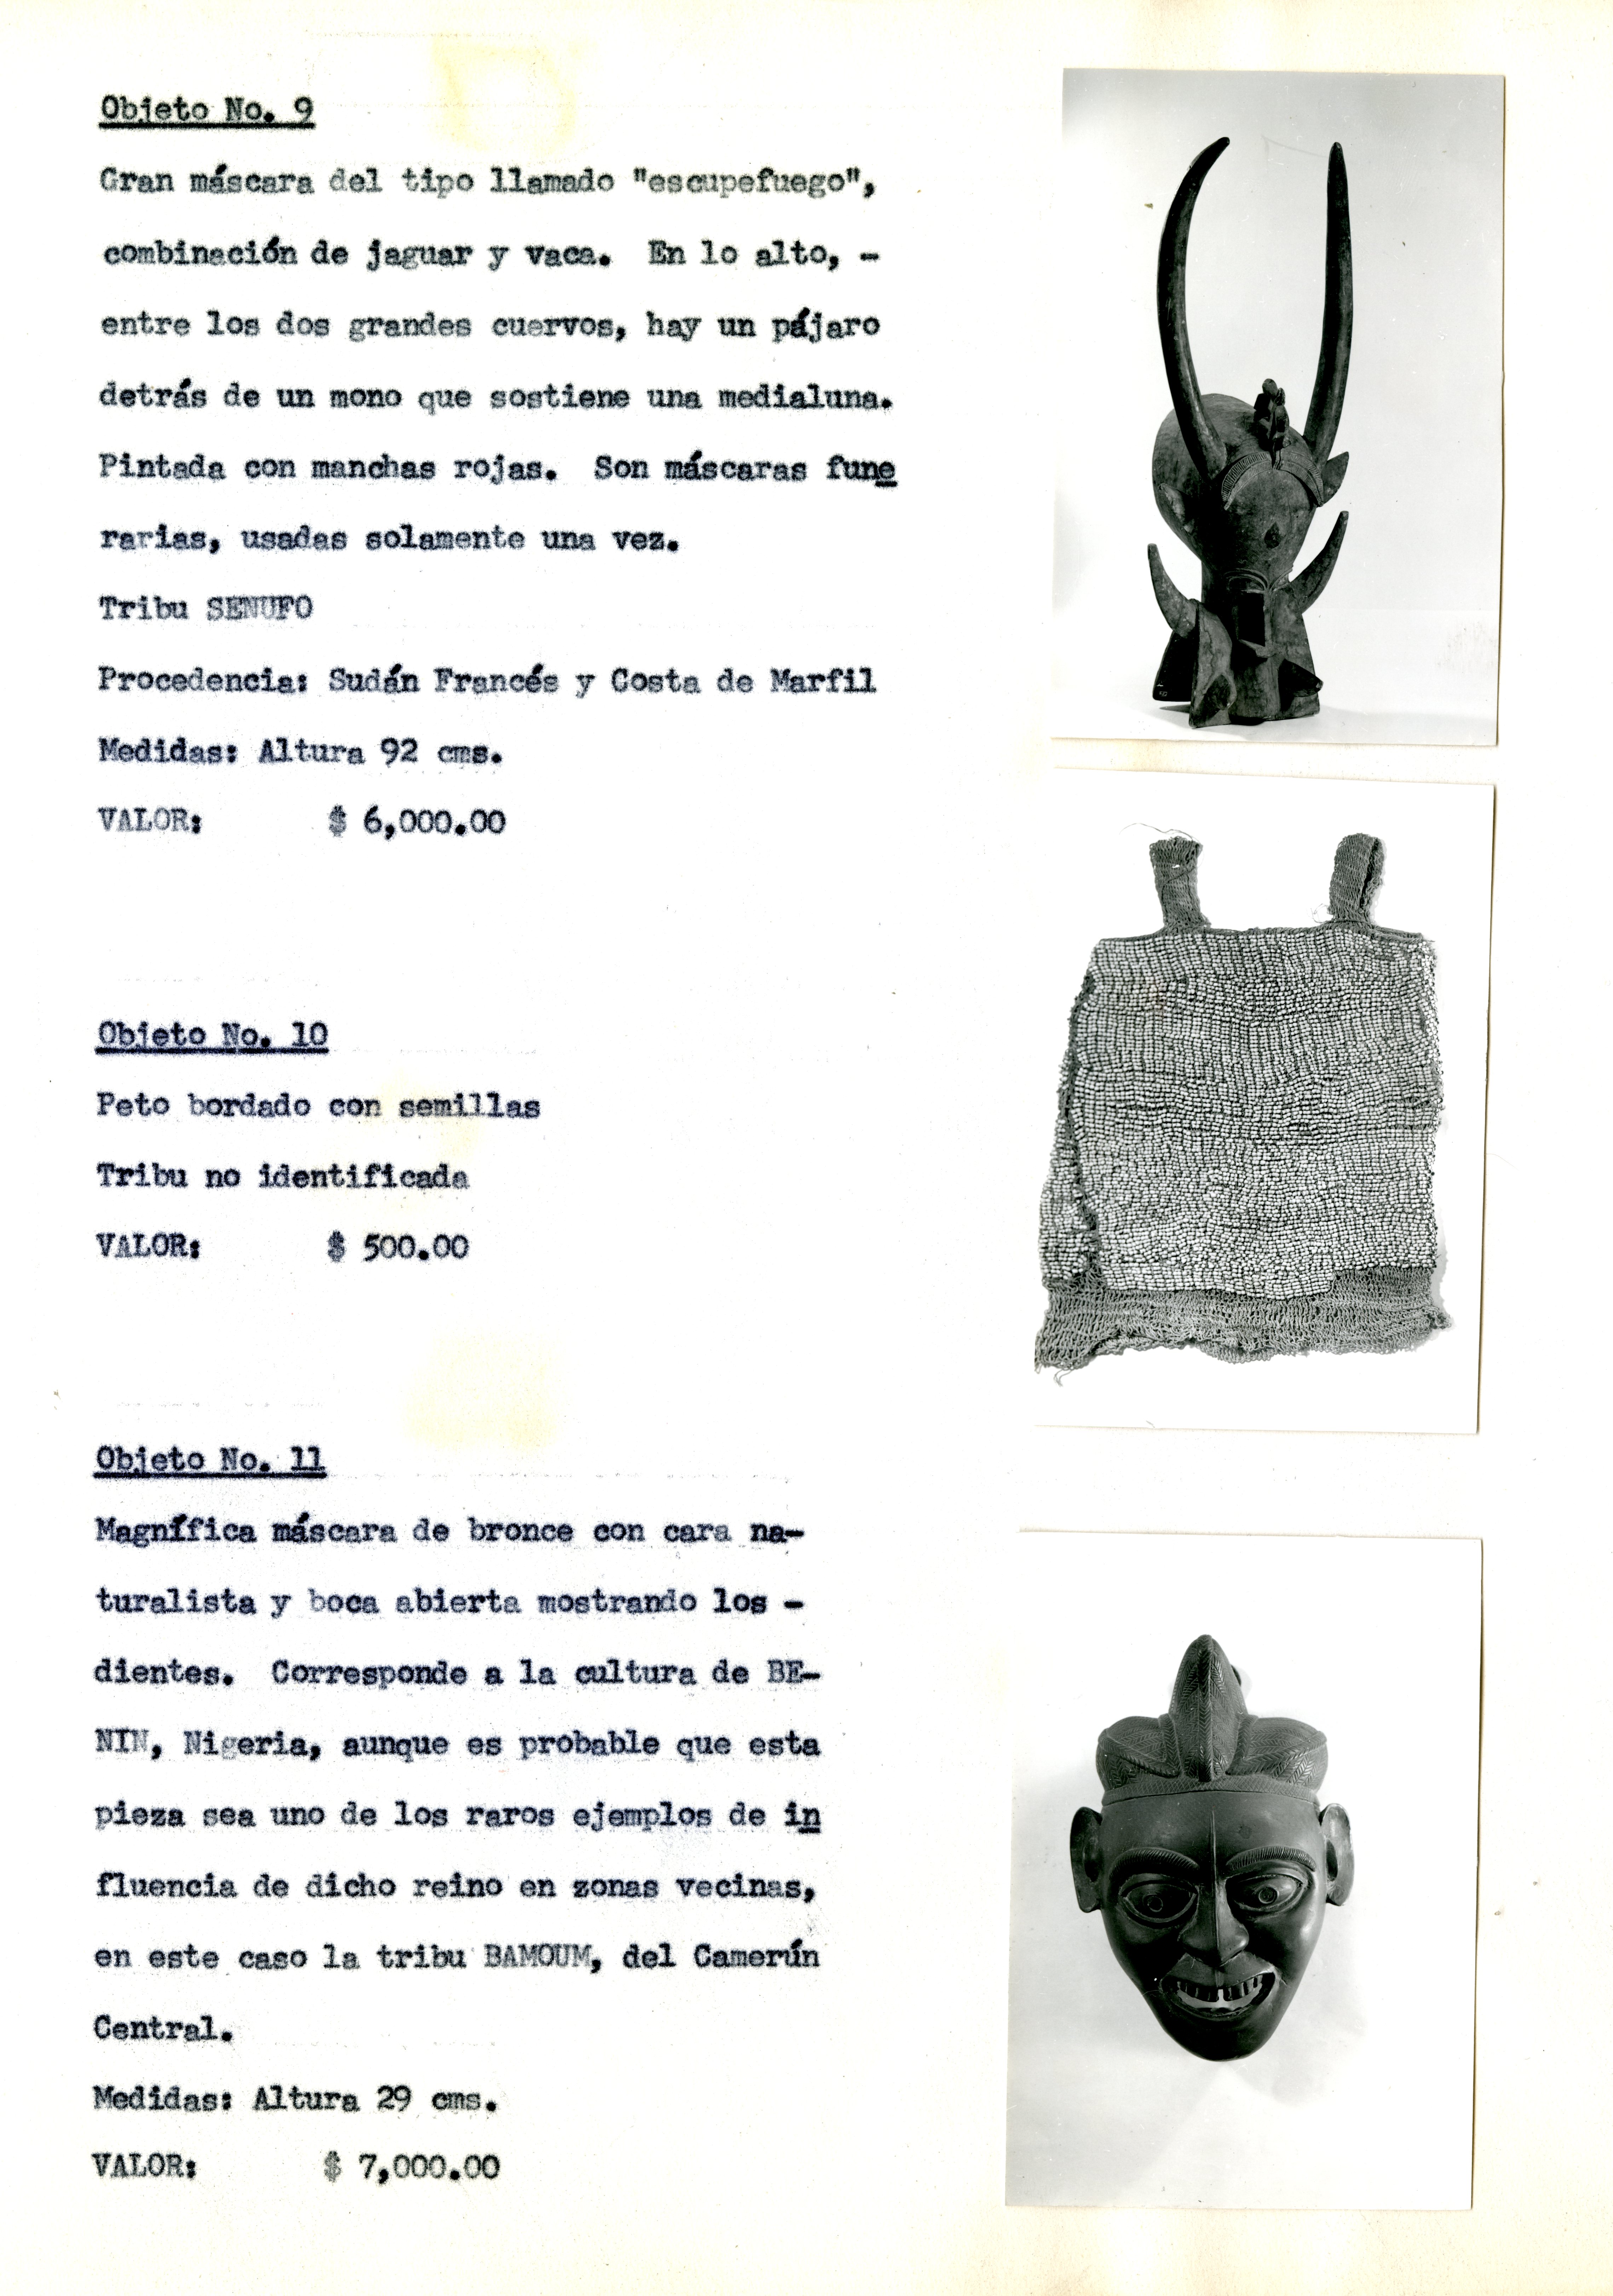 Objeto No. 9
Gran máscara del tipo llamado "escupefuego",
combinación de jaguar y vaca. En lo alto, -
entre los dos grandes cuervos, hay un pájaro
detrás de un mono que sostiene una medialuna.
Pintada con manchas rojas. Son máscaras fune
rarias, usadas solamente una vez.
Tribu SENUFO
Procedencia: Sudán Francés y Costa de Marfil
Medidas: Altura 92 cms.
VALOR: $ 6,000.00
Objeto No. 10
Peto bordado con semillas
Tribu no identificada
VALOR: $ 500.00
Objeto No. 11
Magnífica máscara de bronce con cara na-
turalista y boca abierta mostrando los -
dientes. Corresponde a la cultura de BE-
NIN, Nigeria, aunque es probable que esta
pieza sea uno de los raros ejemplos de in
fluencia de dicho reino en zonas vecinas,
en este caso la tribu BAMOUM, del Camerún
Central.
Medidas: Altura 29 cms.
VALOR: $ 7,000.00